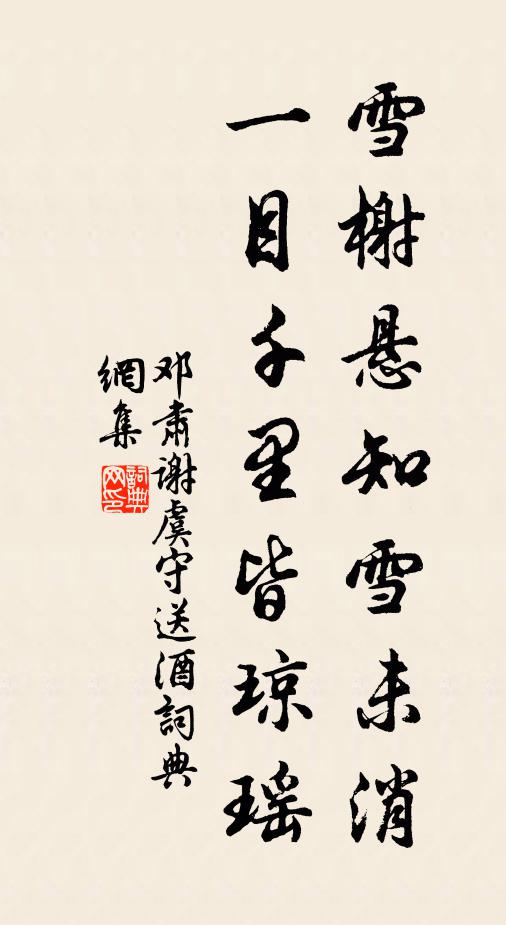 雪榭悬知雪未消
一目千里皆琼瑶
邓肃谢虞守送酒詞典
網集
詞典
网印